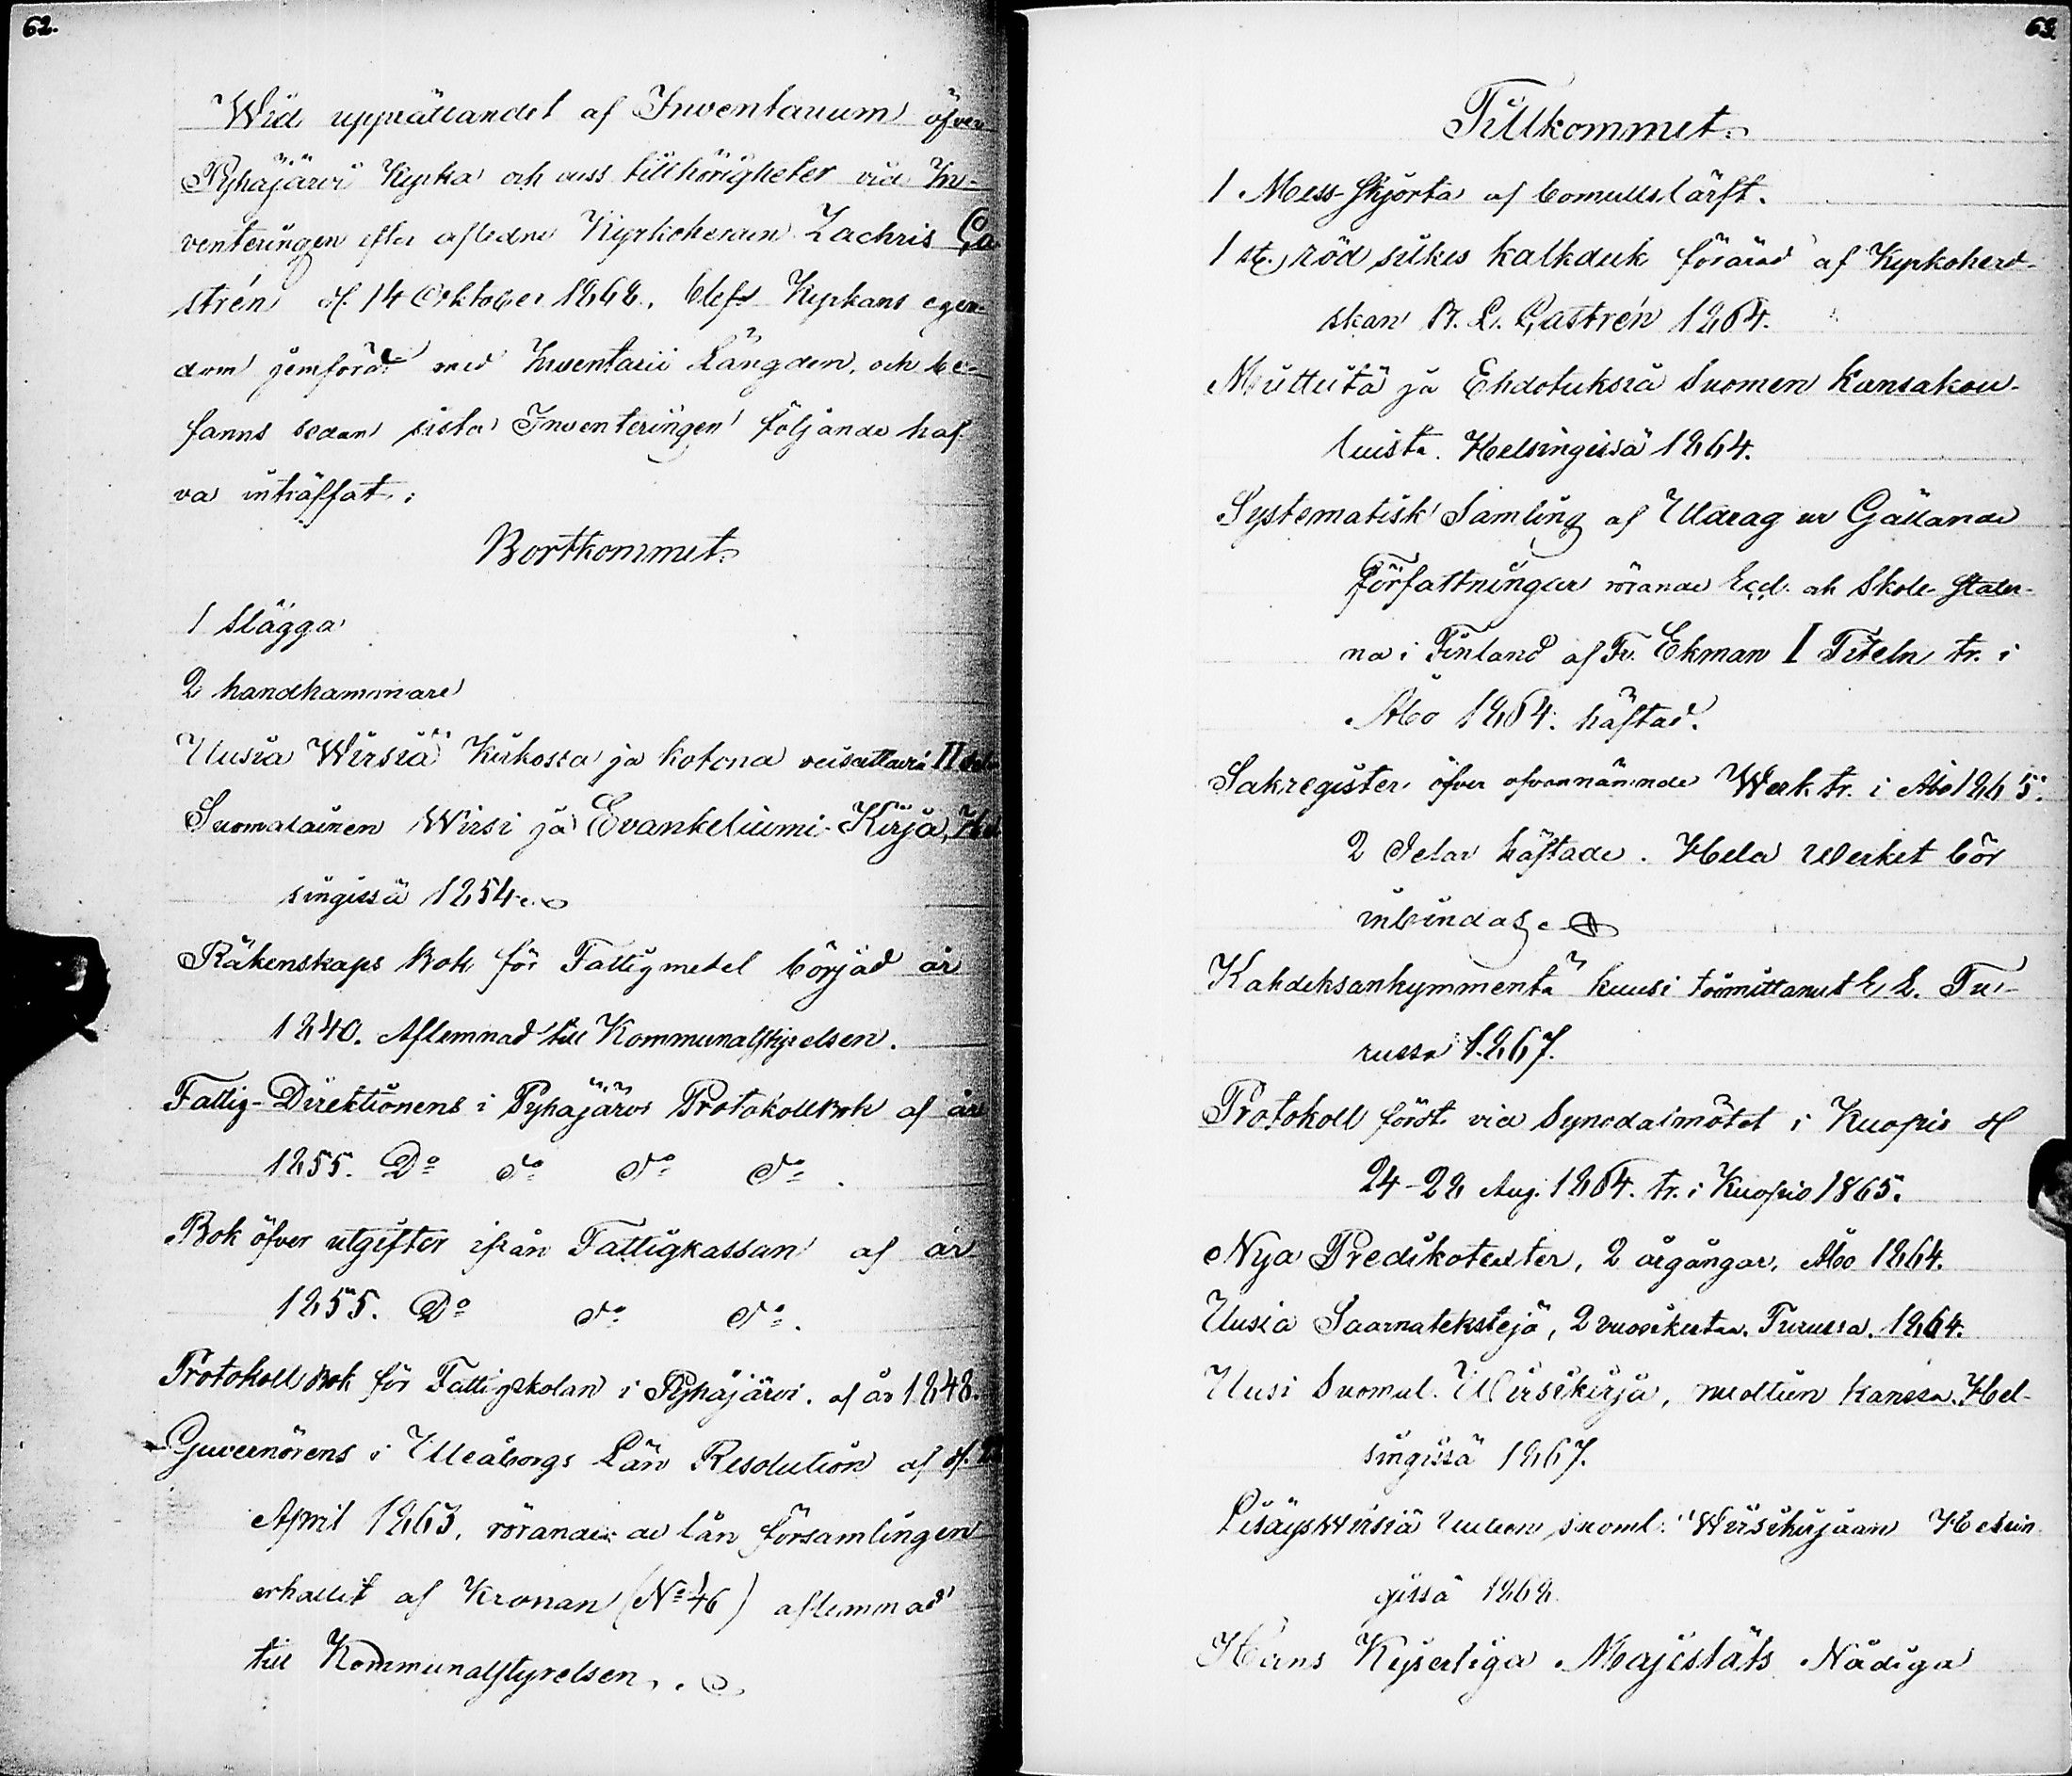 62.
Wid upprättandet af Inventarium öfver
Pyhäjärvi Kyrka och dess tillhörigheter vid In-
venteringen efter afledne Kyrkoherden Zachris Ca
strén d. 14 Oktober 1868, blef Kyrkans egen-
dom jemförd med Inventarii Längden, och be-
fanns sedan sista Inventeringen följande haf-
va inträffat:
Bortkommet.
1 slägga
2 handhammare
Uusia Wirsiä Kirkossa ja kotona veisattavia II
Suomalainen Wirsi ja Evankeliumi-Kirja, Hel
singissä 1854.
Räkenskaps Bok för Fattigmedel börjad år
1840. Aflemnad till Kommunalstyrelsen.
Fattig-Direktionens i Pyhäjärvi Protokollbok af år
1855. Do do do do.
Bok öfver utgifter ifrån Fattigkassan af år
1855. Do do do.
Protokoll Bok för Fattigskolan i Pyhäjärvi. af år 1848.
Guvernörens i Uleåborgs Län Resolution af d.
April 1863, rörande de lån församlingen
erhållit af Kronan (No 46) aflemnad
till Kommunalstyrelsen.
63.
Tillkommet.
1 Mess-skjorta af bomullslärft.
1 st. röd silkes kalkduk förärad af Kyrkoherd-
skan B. L. Castrén 1864.
Mietteitä ja Ehdotuksia Suomen Kansakou-
luista. Helsingissä 1864.
Systematisk Samling af Utdrag ur Gällande
Författningar rörande Eccl. och Skole-Stater-
na i Finland af Fr. Ekman I Titeln tr. i
Åbo 1864. häftad.
Sakregister öfver ofvannämnde Werk tr. i Åbo 1865.
2 delar häftade. Hela Werket bör
inbindas.
Kahdeksankymmentä kuusi toimittanut E. L. Tu-
russa 1867.
Protokoll fördt vid Synodalmötet i Kuopio d
24-28 Aug. 1864. tr. i Kuopio 1865.
Nya Predikotexter, 2 årgångar, Åbo 1864.
Uusia Saarnatekstejä, 2 vuosikertaa. Turussa. 1864.
Uusi Suomal. Wirsikirja, nuottien kanssa. Hel-
singissä 1867.
Lisäyswirsiä Uuteen suoml. Wirsikirjaan Helsin
gissä 1868.
Hans Kejserliga Majestäts Nådiga